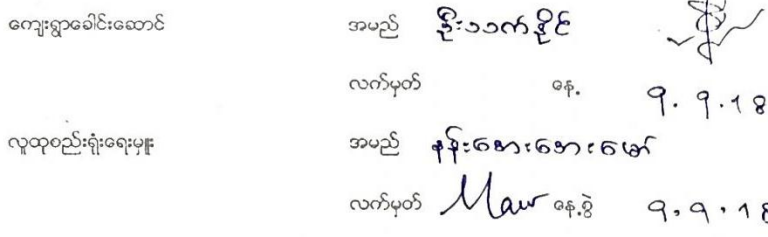 ကျေးရွာခေါင်းဆောင် အမည် ဦးသက်နိုင်
လက်မှတ် နေ့. 9.9.18
လူထုစည်းရုံးရေးမှူး အမည် နန်းအေးအေးမော်
လက်မှတ် Maw နေ့.စွဲ 9.9.18